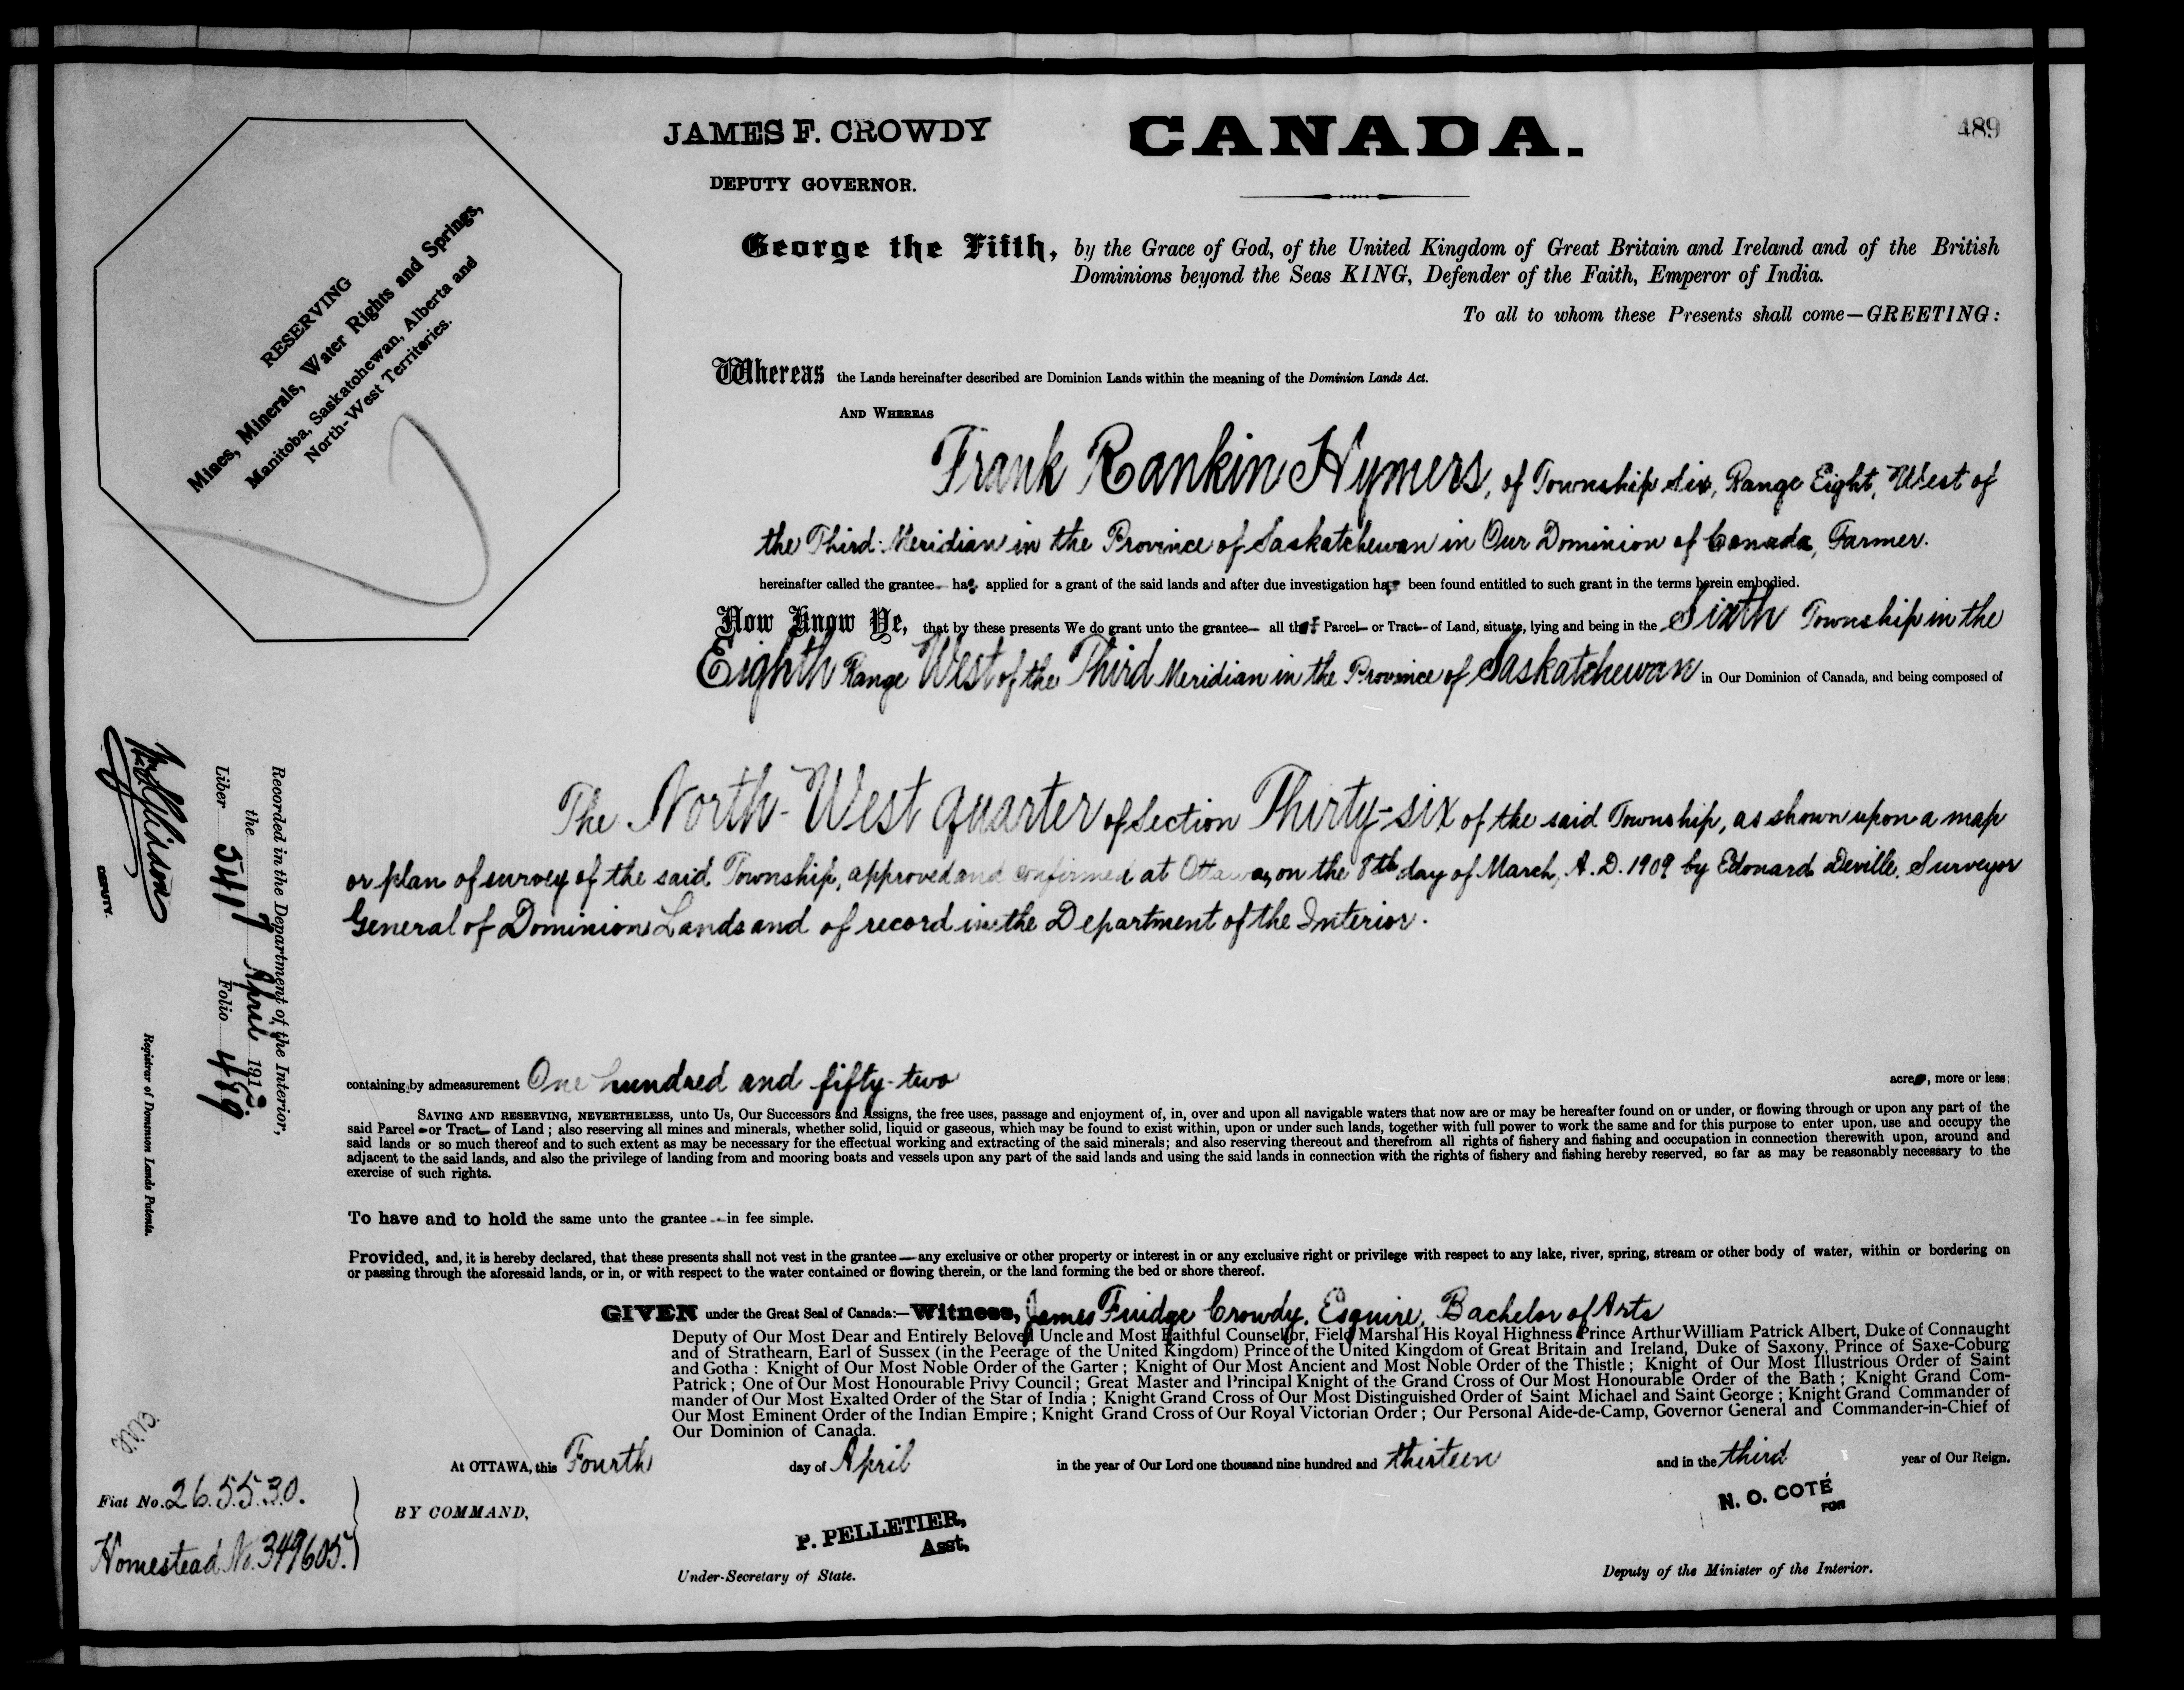 JAMES F. CROWDY
DEPUTY GOVERNOR.
CANADA.
489
RESERVING
Mines, Minerals, Water Rights and Springs,
Manitoba, Saskatchewan, Alberta and
North-West Territories.
George the Fifth, by the Grace of God, of the United Kingdom of Great Britain and Ireland and of the British
Dominions beyond the Seas KING, Defender of the Faith, Emperor of India.
To all to whom these Presents shall come—GREETING:
Whereas the Lands hereinafter described are Dominion Lands within the meaning of the Dominion Lands Act.
AND WHEREAS
Frank Rankin Hymers, of Township Six, Range Eight, West of
the Third Meridian in the Province of Saskatchewan in Our Dominion of Canada, Farmer.
hereinafter called the grantee has applied for a grant of the said lands and after due investigation has been found entitled to such grant in the terms herein embodied.
Now Know Ye, that by these presents We do grant unto the grantee— all that Parcel— or Tract— of Land, situate, lying and being in the Sixth Township in the
Eighth Range West of the Third Meridian in the Province of Saskatchewan in Our Dominion of Canada, and being composed of
The North-West quarter of Section Thirty-six of the said Township, as shown upon a map
or plan of survey of the said Township, approved and confirmed at Ottawa, on the 8th day of March, A.D. 1909 by Edouard Deville, Surveyor
General of Dominion Lands and of record in the Department of the Interior.
containing by admeasurement One hundred and fifty-two acres, more or less;
SAVING AND RESERVING, NEVERTHELESS, unto Us, Our Successors and Assigns, the free uses, passage and enjoyment of, in, over and upon all navigable waters that now are or may be hereafter found on or under, or flowing through or upon any part of the
said Parcel—or Tract— of Land; also reserving all mines and minerals, whether solid, liquid or gaseous, which may be found to exist within, upon or under such lands, together with full power to work the same and for this purpose to enter upon, use and occupy the
said lands or so much thereof and to such extent as may be necessary for the effectual working and extracting of the said minerals; and also reserving thereout and therefrom all rights of fishery and fishing and occupation in connection therewith upon, around and
adjacent to the said lands, and also the privilege of landing from and mooring boats and vessels upon any part of the said lands and using the said lands in connection with the rights of fishery and fishing hereby reserved, so far as may be reasonably necessary to the
exercise of such rights.
To have and to hold the same unto the grantee—in fee simple.
Provided, and, it is hereby declared, that these presents shall not vest in the grantee—any exclusive or other property or interest in or any exclusive right or privilege with respect to any lake, river, spring, stream or other body of water, within or bordering on
or passing through the aforesaid lands, or in, or with respect to the water contained or flowing therein, or the land forming the bed or shore thereof.
GIVEN under the Great Seal of Canada:—Witness, James Fuidge Crowdy, Esquire, Bachelor of Arts
Deputy of Our Most Dear and Entirely Beloved Uncle and Most Faithful Counsellor, Field Marshal His Royal Highness Prince Arthur William Patrick Albert, Duke of Connaught
and of Strathearn, Earl of Sussex (in the Peerage of the United Kingdom) Prince of the United Kingdom of Great Britain and Ireland, Duke of Saxony, Prince of Saxe-Coburg
and Gotha: Knight of Our Most Noble Order of the Garter; Knight of Our Most Ancient and Most Noble Order of the Thistle; Knight of Our Most Illustrious Order of Saint
Patrick; One of Our Most Honourable Privy Council; Great Master and Principal Knight of the Grand Cross of Our Most Honourable Order of the Bath; Knight Grand Com-
mander of Our Most Exalted Order of the Star of India; Knight Grand Cross of Our Most Distinguished Order of Saint Michael and Saint George; Knight Grand Commander of
Our Most Eminent Order of the Indian Empire; Knight Grand Cross of Our Royal Victorian Order; Our Personal Aide-de-Camp, Governor General and Commander-in-Chief of
Our Dominion of Canada.
At OTTAWA, this Fourth day of April in the year of Our Lord one thousand nine hundred and thirteen and in the third year of Our Reign.
BY COMMAND,
P. PELLETIER,
Asst.
Under-Secretary of State.
N. O. COTÉ
FOR
Deputy of the Minister of the Interior.
Recorded in the Department of the Interior,
the 7 April 1913.
Liber 541 Folio 489
DEPUTY.
Registrar of Dominion Lands Patents.
Fiat No. 265530.
Homestead No. 349605.